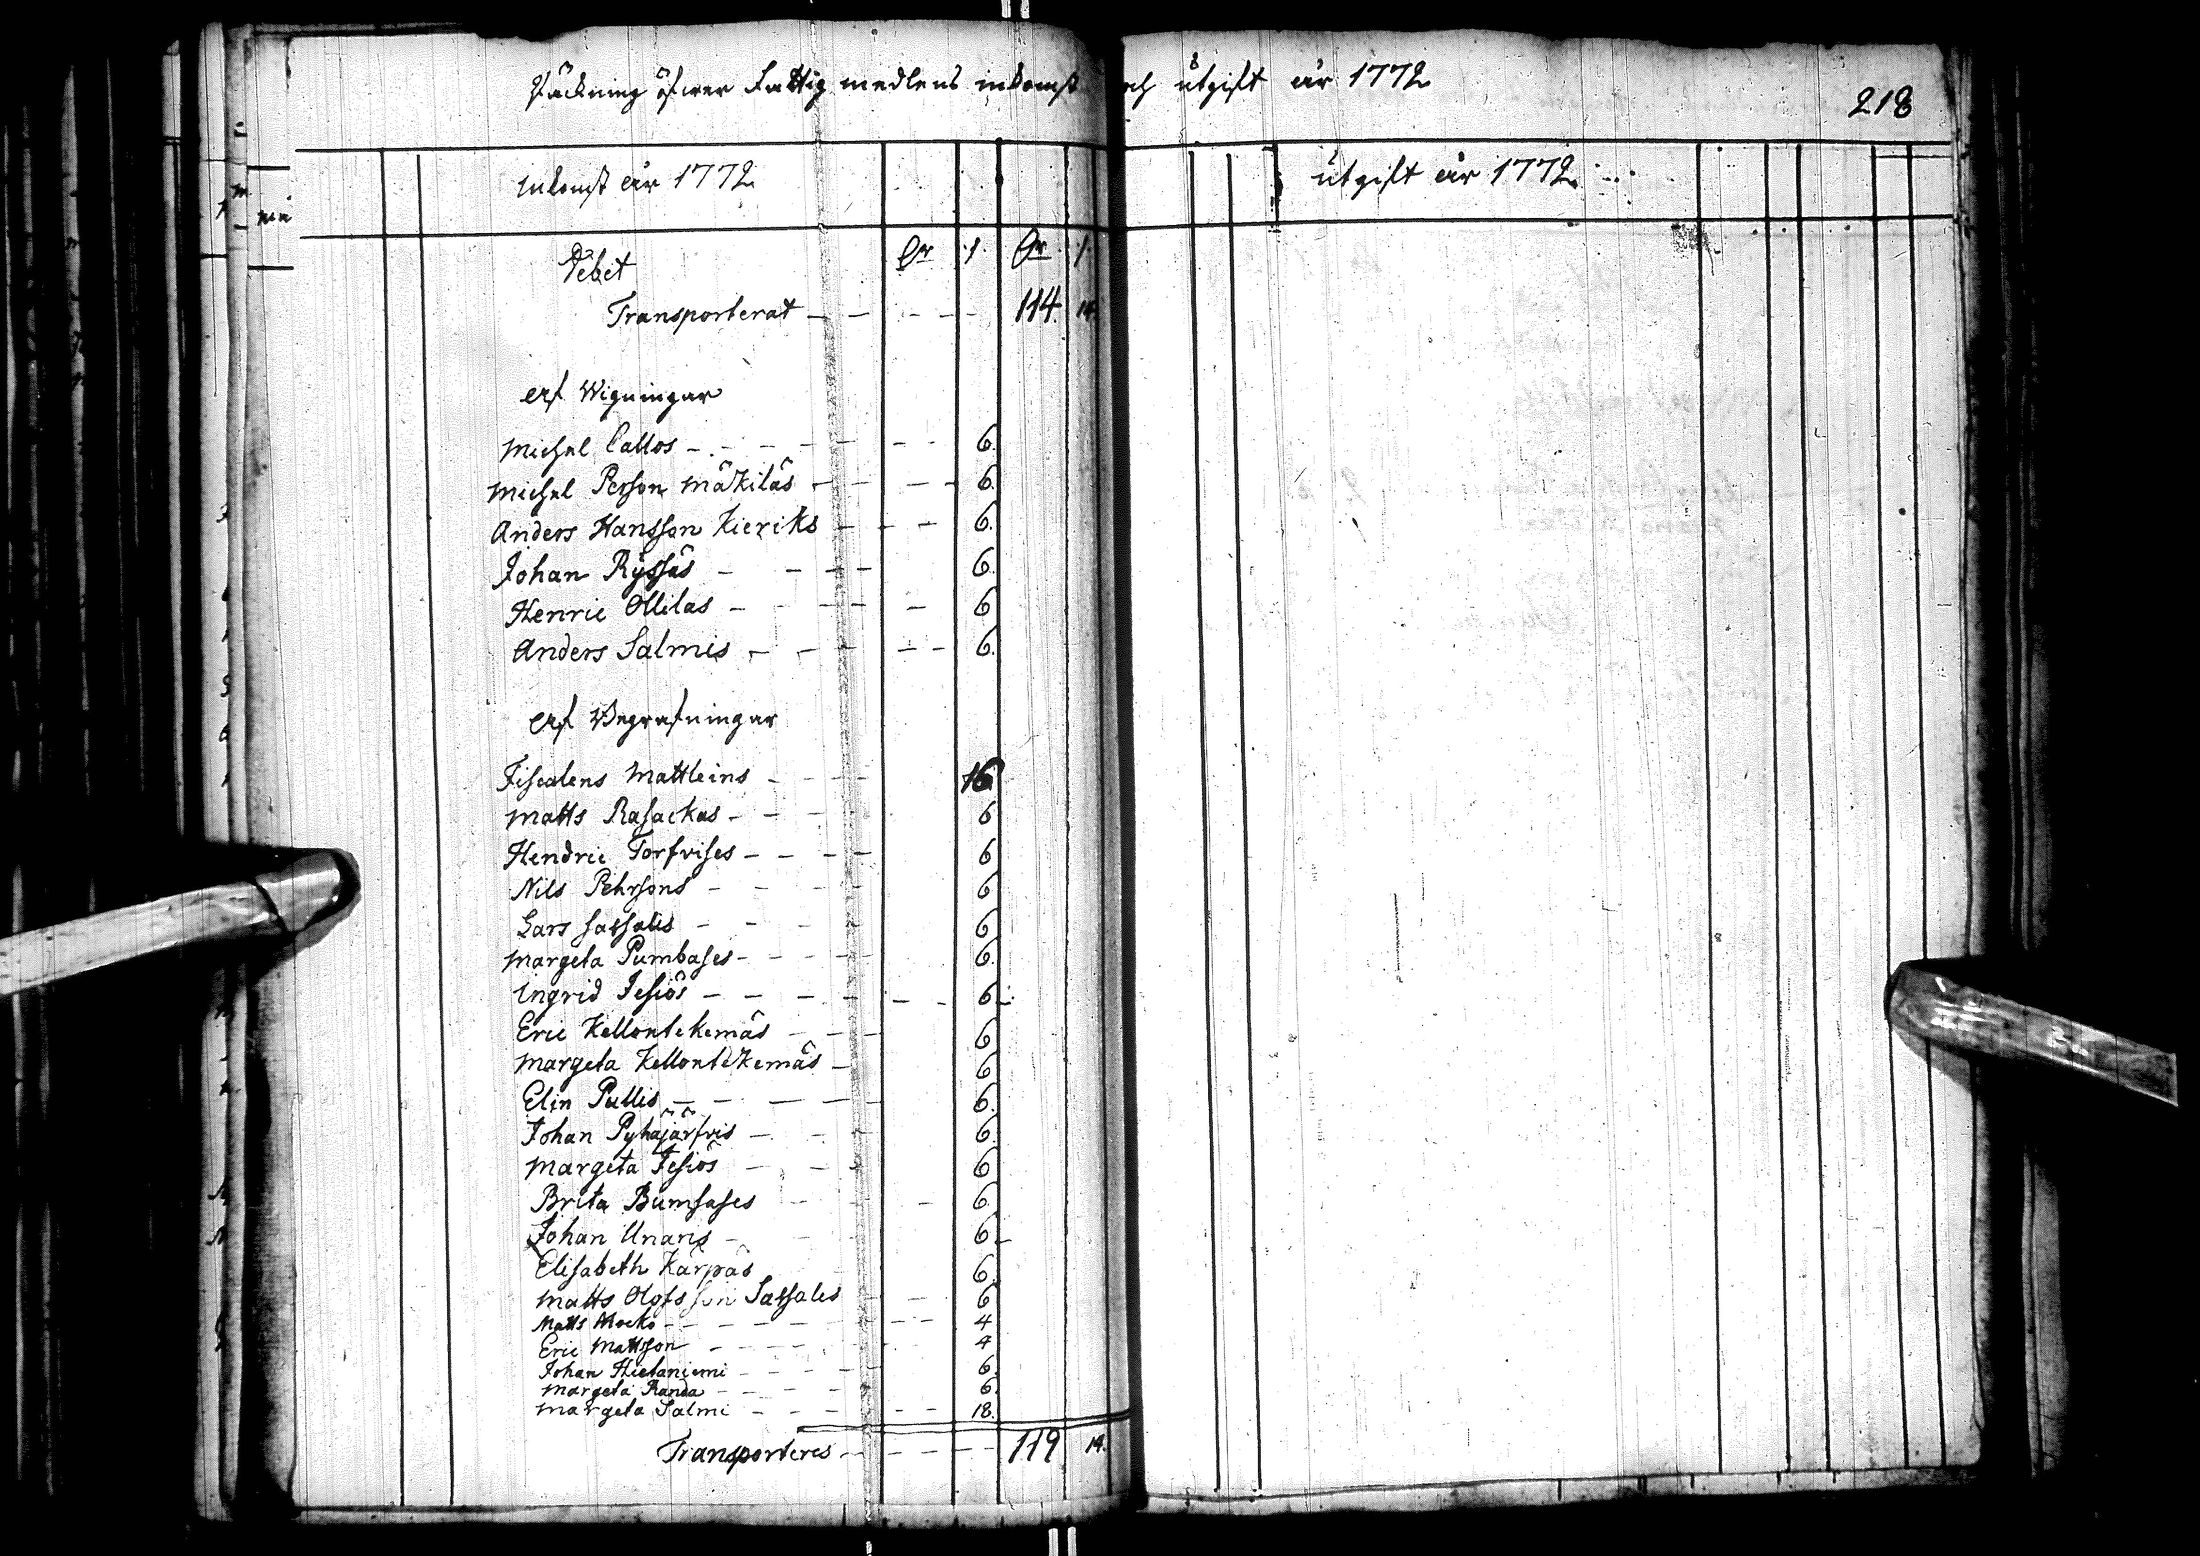 Räckning öfwer Fattig medlens inkomst och utgift år 1772
218
inkomst år 1772
utgift år 1772
Debet
Transporterat 114 14
Af Wigningar
Michel Callos 6
Michel Persson Mäkiläs 6
Anders Hansson Kieriks 6
Johan Ryssäs 6
Henric Ollilas 6
Anders Salmis 6
Af Begrafningar
Fiscalens Mattleins 16
Matts Rasackas 6
Hendric Torfvises 6
Nils Pehrsons 6
Lars Sassalis 6
Margeta Pumbases 6
Ingrid Jesiös 6
Eric Kellontekemäs 6
Margeta Kellontekemäs 6
Elin Pullis 6
Johan Pyhäjärfvis 6
Margeta Jesiös 6
Brita Bumsases 6
Johan Unaris 6
Elisabeth Kärpäs 6
Matts Olofsson Sassales 6
Matts 4
Eric Mattsson 4
Johan Hietaniemi 6
Margeta Randa 6
Margeta Salmi 18
Transporteres 119 14